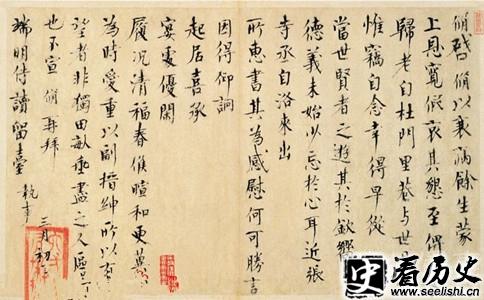 脩啓脩以衰病餘生蒙
上恩寬假哀其懇至俾
歸老自杜門里巷與世
惟竊自念幸得早從
當世賢者之遊其於欽嚮
德義未始少忘於心耳近張
寺丞自洛來出
所惠書其為感慰何可勝言
因得仰詢
起居喜承
宴處優閑
履況清福春候暄和更冀
為時愛重以副搢紳所以有
望者非獨田畝垂盡之人區區
也不宣脩再拜
端明侍讀留臺執事
三月初二
史看历史
www.seelishi.cn